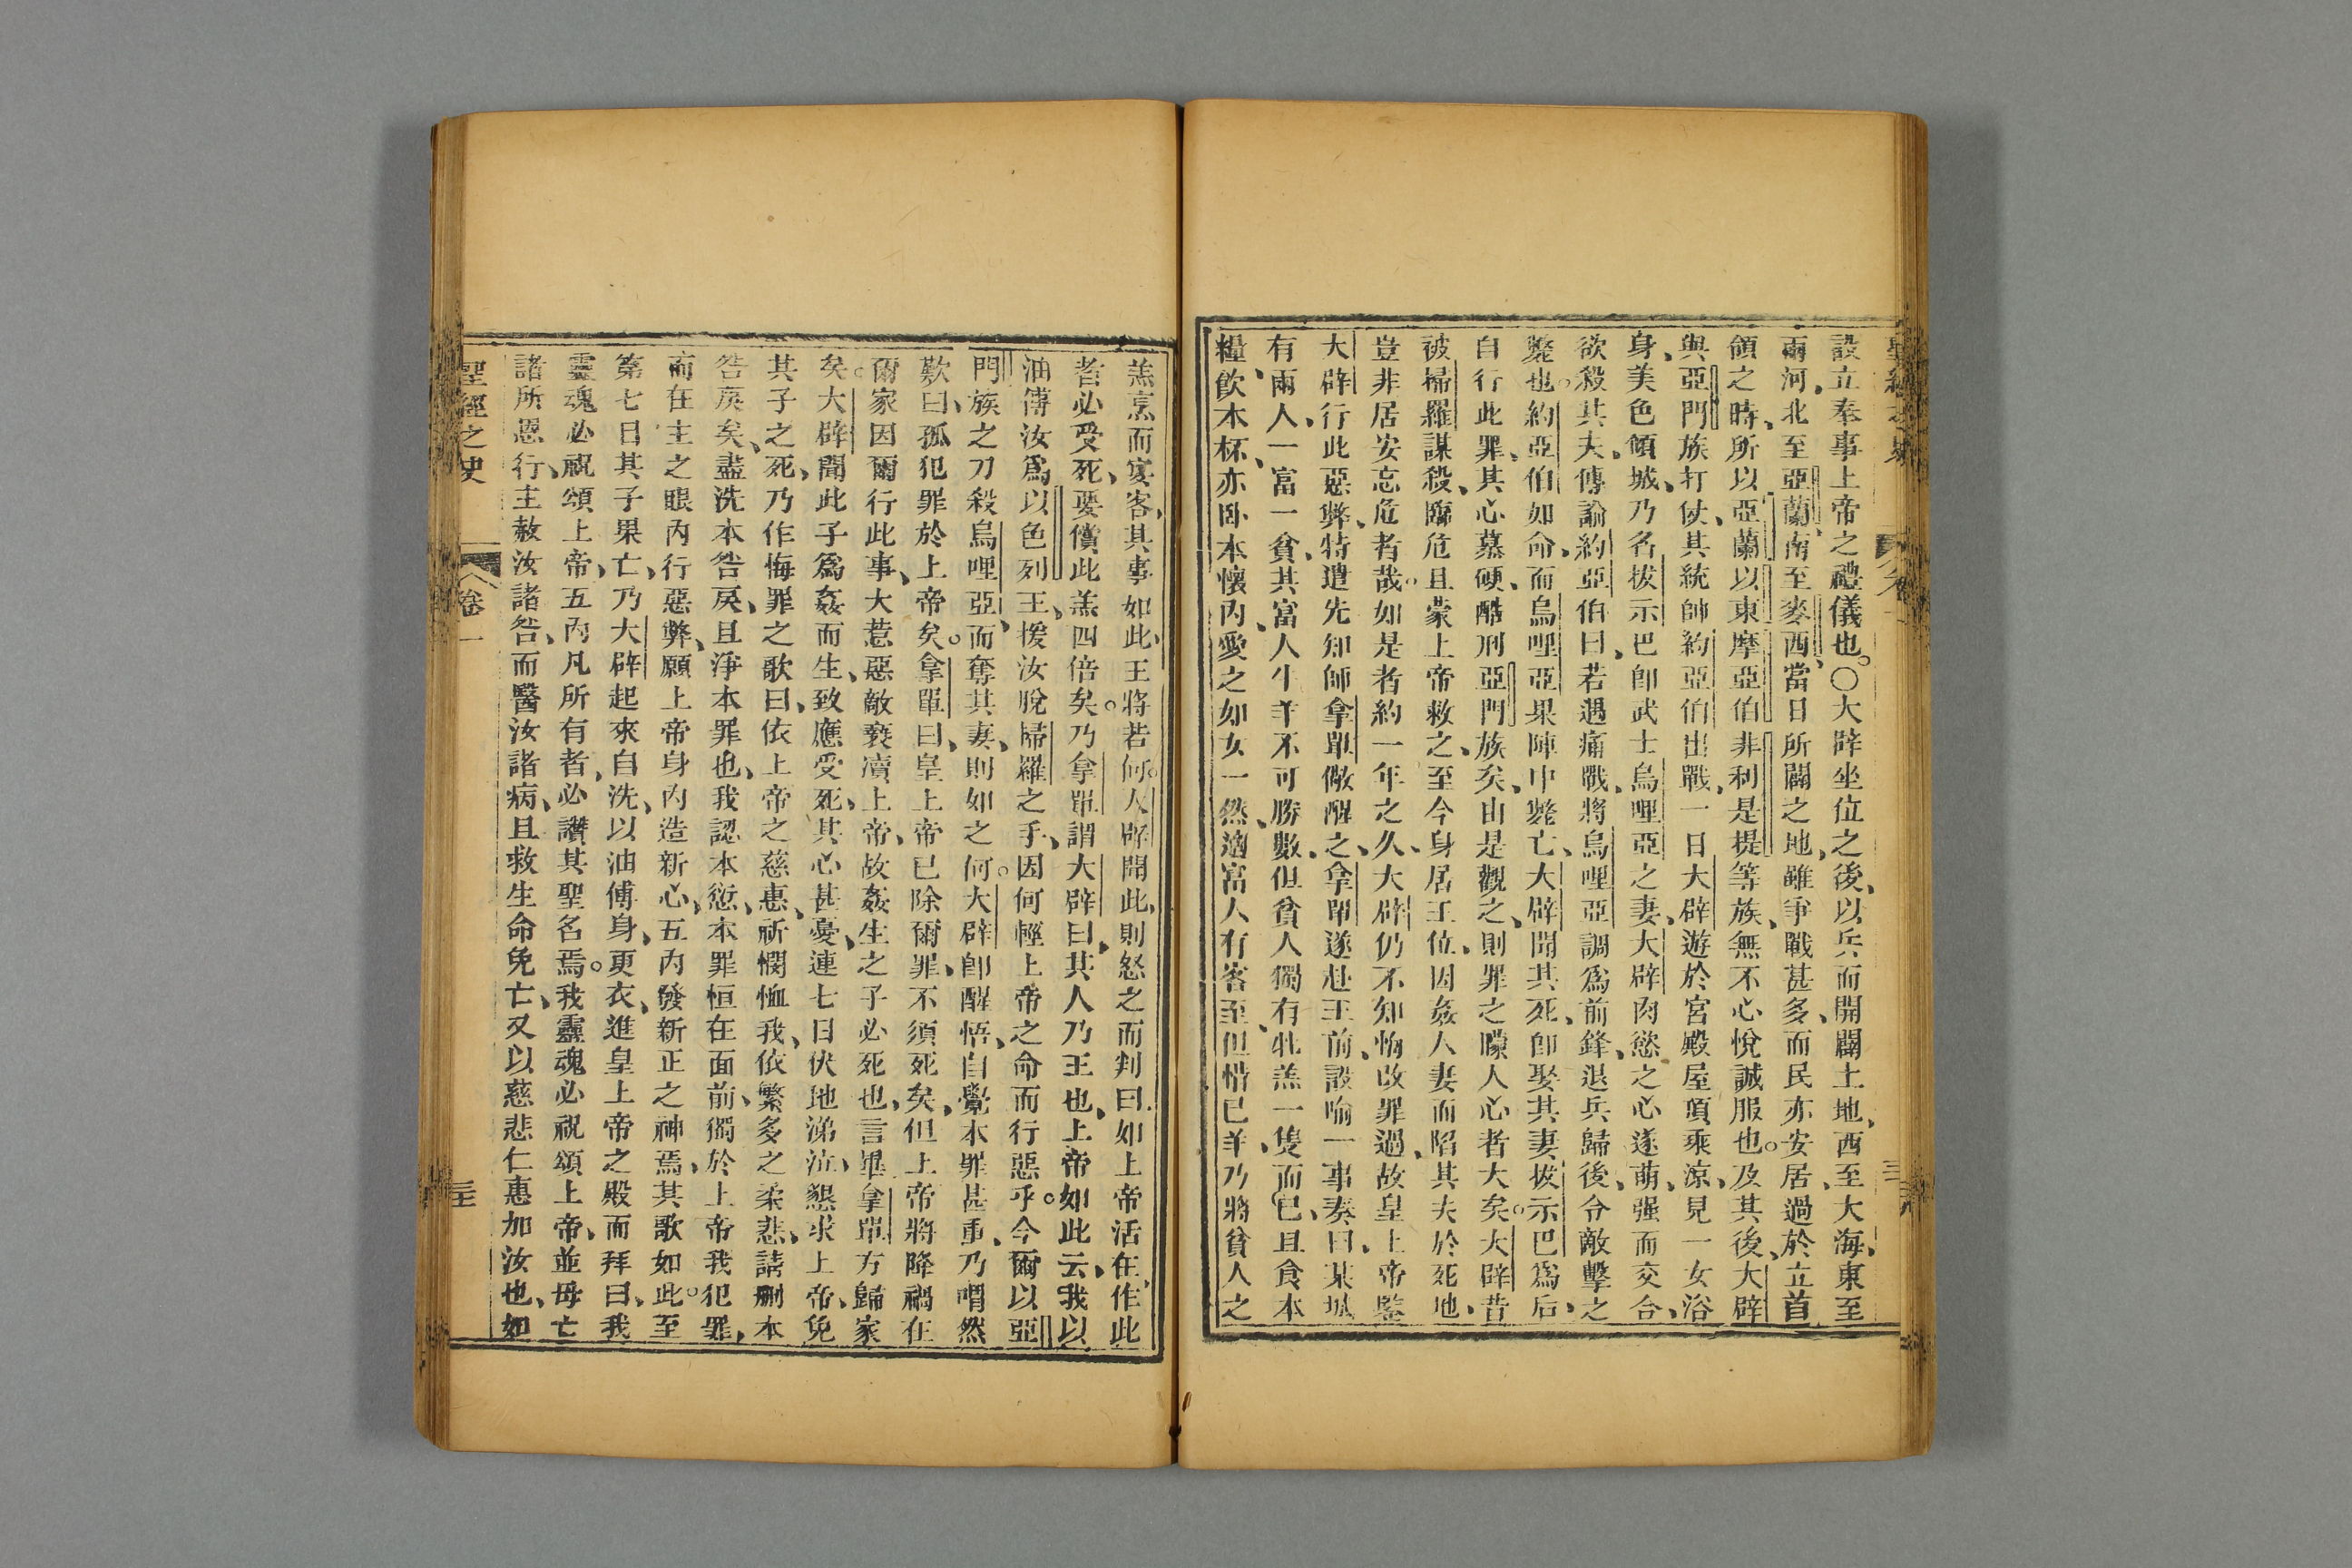 設立奉事上帝之禮儀也。〇大辟坐位之後、以兵而開闢土地、西至大海、東至
兩河、北至亞蘭、南至麥西、當日所闢之地、雖爭戰甚多、而民亦安居、過於立首
領之時、所以亞蘭以東摩亞伯非利是提等族、無不心悅誠服也。及其後、大辟
與亞門族打仗、其統帥約亞伯出戰、一日大辟遊於宮殿屋頂乘涼、見一女浴
身、美色傾城、乃名拔示巴卽武士烏哩亞之妻、大辟肉慾之心遂萌、强而交合、
欲殺其夫、傳諭約亞伯曰、若遇痛戰、將烏哩亞調爲前鋒、退兵歸後、令敵擊之
斃也。約亞伯如命、而烏哩亞果陣中斃亡、大辟聞其死、卽娶其妻拔示巴爲后、
自行此罪、其心慕硬、酷刑亞門族矣、由是觀之、則罪之矇人心者大矣。大辟昔
被掃羅謀殺、臨危且蒙上帝救之、至今身居王位、因姦人妻而陷其夫於死地、
豈非居安忘危者哉。如是者約一年之久、大辟仍不知悔改罪過、故皇上帝監
大辟行此惡弊、特遣先知師拿單儆醒之、拿單遂赴王前、設喻一事奏曰、某城
有兩人、一富一貧、其富人牛羊不可勝數、但貧人獨有牝羔一隻而已、且食本
糧、飲本杯、亦臥本懷內、愛之如女一然、適富人有客至、但惜已羊、乃將貧人之
羔烹而宴客、其事如此、王將若何。大辟聞此、則怒之而判曰、如上帝活在、作此
者必受死、要償此羔四倍矣。乃拿單謂大辟曰、其人乃王也、上帝如此云、我以
油傅汝爲以色列王、援汝脫掃羅之手、因何輕上帝之命而行惡乎。今爾以亞
門族之刀殺烏哩亞、而奪其妻、則如之何。大辟卽醒悟、自覺本罪甚重、乃喟然
歎曰、孤犯罪於上帝矣。拿單曰、皇上帝已除爾罪、不須死矣、但上帝將降禍在
爾家、因爾行此事、大惹惡敵褻瀆上帝、故姦生之子必死也、言畢拿單方歸家
矣。大辟聞此子爲姦而生、致應受死、其心甚憂、連七日伏地涕泣、懇求上帝、免
其子之死、乃作悔罪之歌曰、依上帝之慈惠、祈憫恤我、依繁多之柔悲、請刪本
咎戾矣、盡洗本咎戾、且淨本罪也、我認本愆、本罪恒在面前、獨於上帝我犯罪、
而在主之眼內行惡弊、願上帝身內造新心、五內發新正之神焉、其歌如此。至
第七日其子果亡、乃大辟起來自洗、以油傅身、更衣、進皇上帝之殿而拜曰、我
靈魂必祝頌上帝、五內凡所有者、必讚其聖名焉。我靈魂必祝頌上帝、並毋亡
諸所恩行、主赦汝諸咎、而醫汝諸病、且救生命免亡、又以慈悲仁惠加汝也、如
聖經之史 卷一